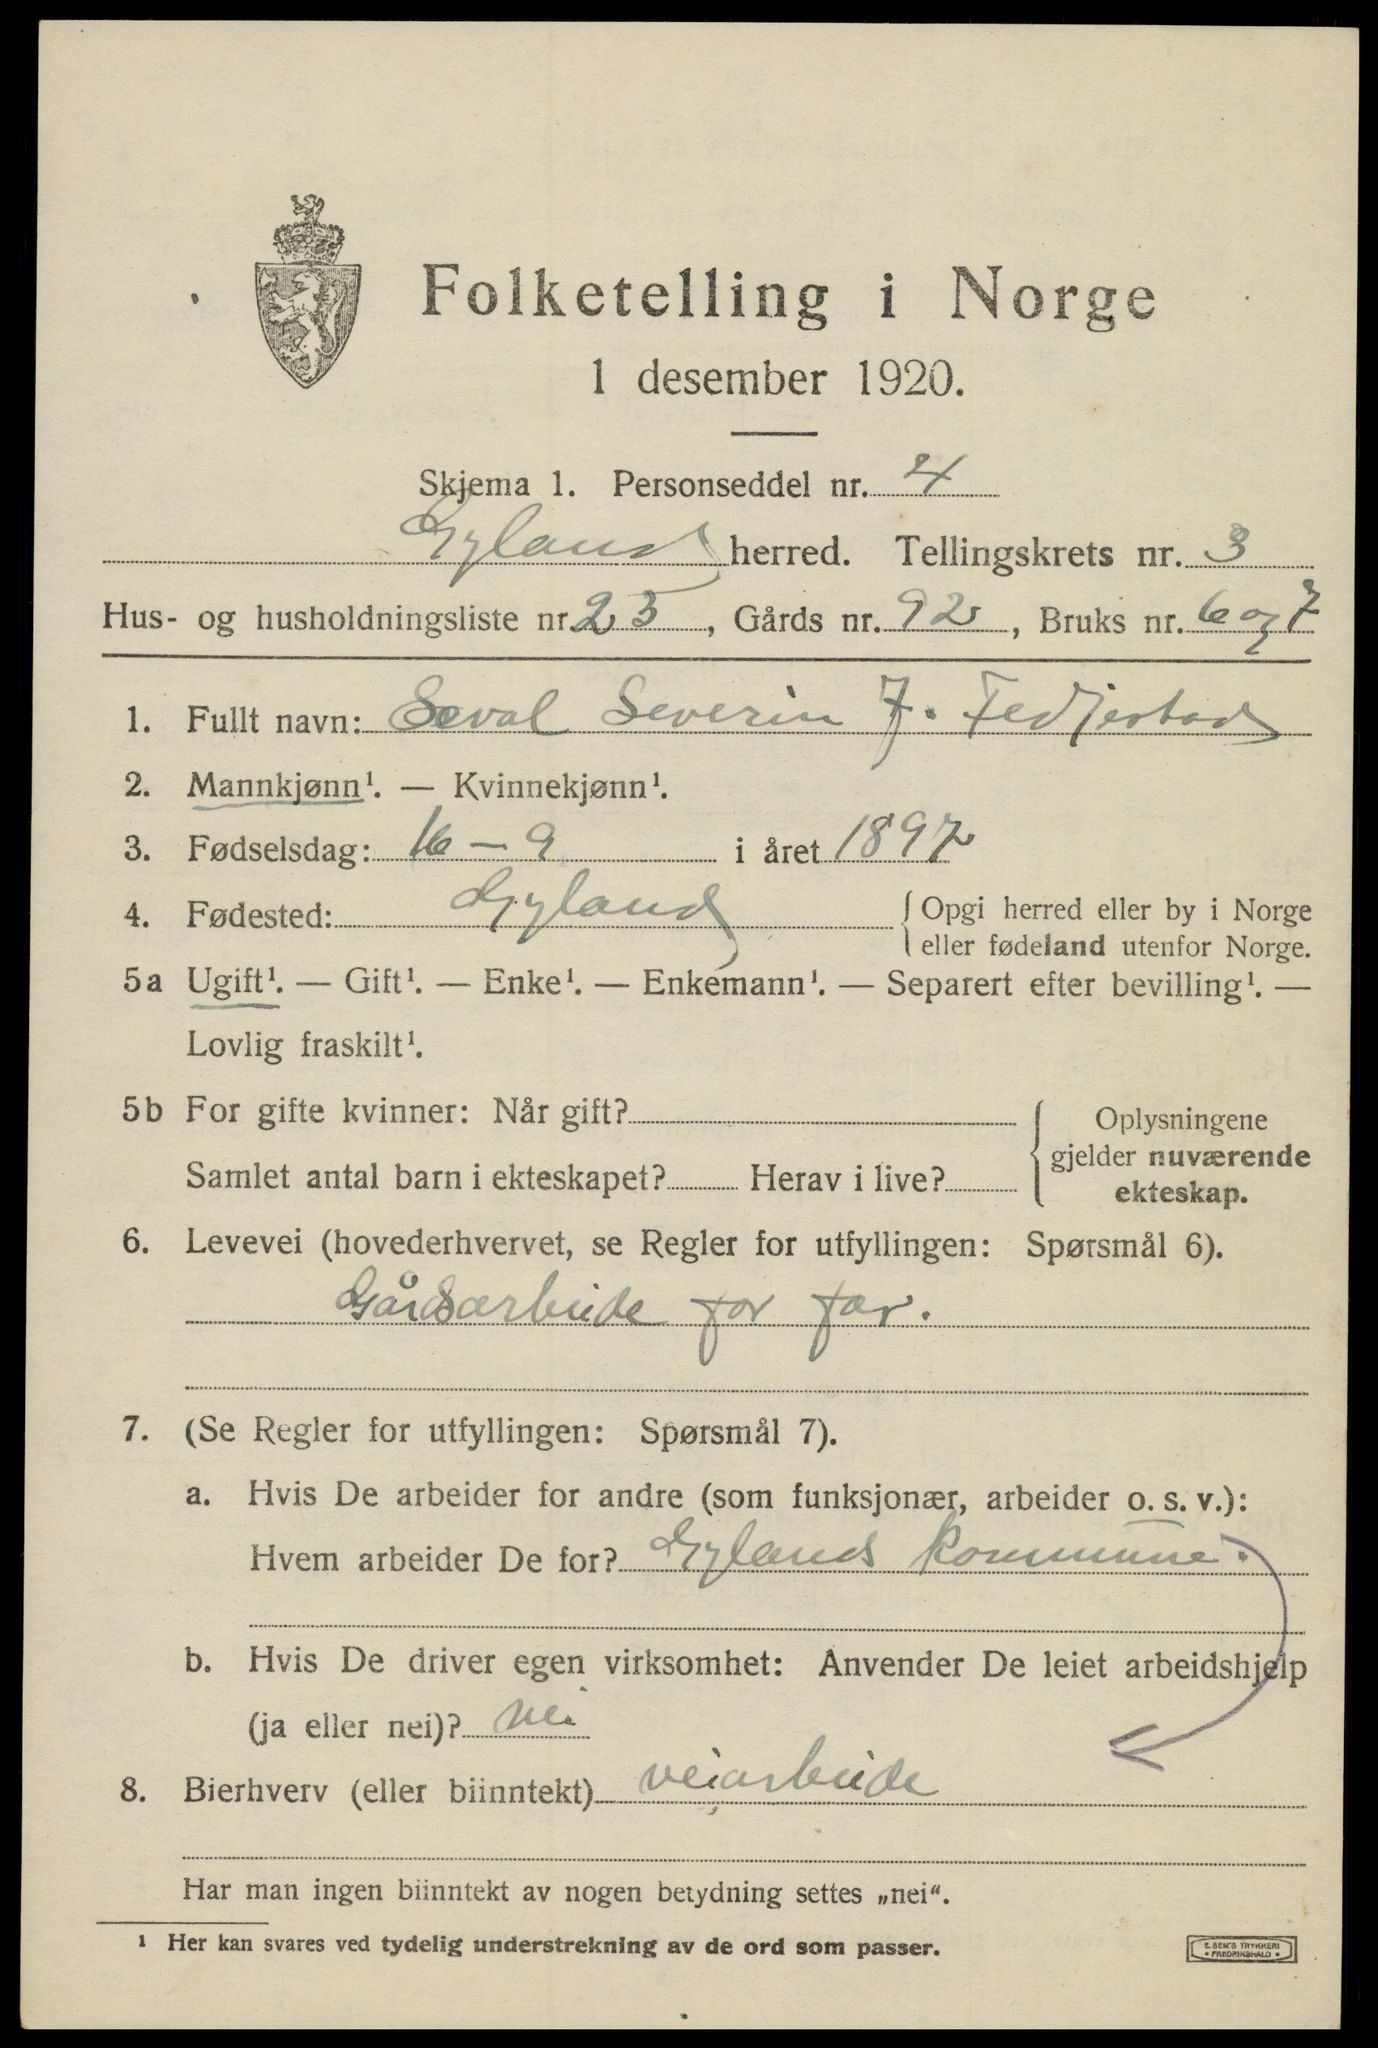 Folketelling i Norge
1 desember 1920.
Skjema 1. Personseddel nr. 4
Gyland herred. Tellingskrets nr. 3
Hus- og husholdningsliste nr. 25, Gårds nr. 92, Bruks nr. 6 og 7
1. Fullt navn: Seval Severin J. Fedjestad
2. Mannkjønn¹. — Kvinnekjønn¹.
3. Fødselsdag: 16 – 9 i året 1897
4. Fødested: Gyland { Opgi herred eller by i Norge
eller fødeland utenfor Norge.
5a Ugift¹. — Gift¹. — Enke¹. — Enkemann¹. — Separert efter bevilling¹. —
Lovlig fraskilt¹.
5b For gifte kvinner: Når gift? { Oplysningene
gjelder nuværende
Samlet antal barn i ekteskapet? Herav i live? ekteskap.
6. Levevei (hovederhvervet, se Regler for utfyllingen: Spørsmål 6).
Gårdsarbeide for far.
7. (Se Regler for utfyllingen: Spørsmål 7).
a. Hvis De arbeider for andre (som funksjonær, arbeider o. s. v.):
Hvem arbeider De for? Gylands kommune.
b. Hvis De driver egen virksomhet: Anvender De leiet arbeidshjelp
(ja eller nei)? nei
8. Bierhverv (eller biinntekt) veiarbeide
Har man ingen biinntekt av nogen betydning settes „nei“.
¹ Her kan svares ved tydelig understrekning av de ord som passer.
E. SEM'S TRYKKERI
• FREDRIKSHALD •